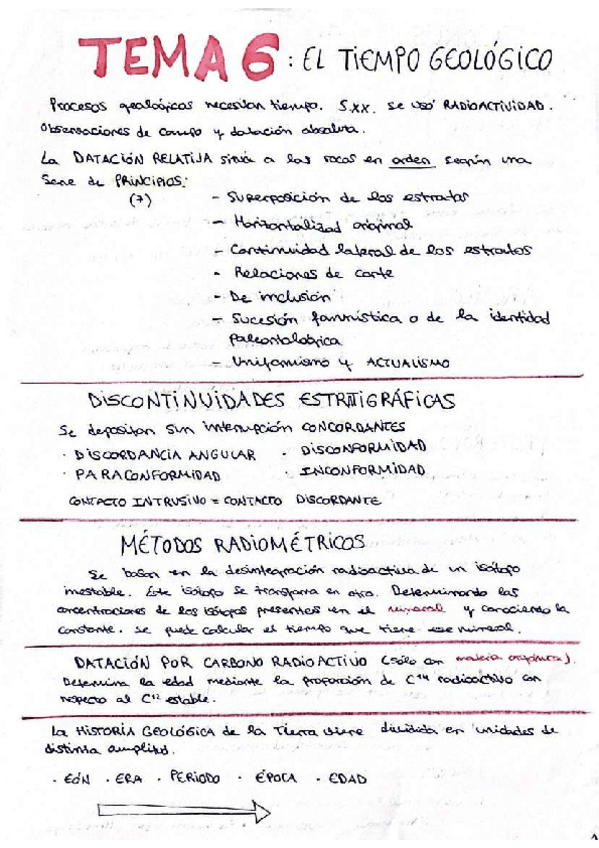 TEMA 6: EL TIEMPO GEOLÓGICO
Procesos geológicos necesitan tiempo. S.XX. se usó RADIOACTIVIDAD.
Observaciones de campo y datación absoluta.
La DATACIÓN RELATIVA sitúa a las rocas en orden según una
serie de PRINCIPIOS:
(7)
- Superposición de los estratos
- Horizontalidad original
- Continuidad lateral de los estratos
- Relaciones de corte
- De inclusión
- Sucesión faunística o de la identidad
paleontológica
- Uniformismo y ACTUALISMO
DISCONTINUIDADES ESTRATIGRÁFICAS
Se depositan sin interrupción CONCORDANTES
· DISCORDANCIA ANGULAR · DISCONFORMIDAD
· PARACONFORMIDAD · INCONFORMIDAD
CONTACTO INTRUSIVO = CONTACTO DISCORDANTE
MÉTODOS RADIOMÉTRICOS
Se basan en la desintegración radioactiva de un isótopo
inestable. Este isótopo se transforma en otro. Determinando las
concentraciones de los isótopos presentes en el mineral y conociendo la
constante. se puede calcular el tiempo que tiene ese mineral.
DATACIÓN POR CARBONO RADIOACTIVO (sólo con materia orgánica).
Determina la edad mediante la proporción de C¹⁴ radioactivo con
respecto al C¹² estable.
La HISTORIA GEOLÓGICA de la Tierra viene dividida en unidades de
distinta amplitud.
· EÓN · ERA · PERIODO · ÉPOCA · EDAD